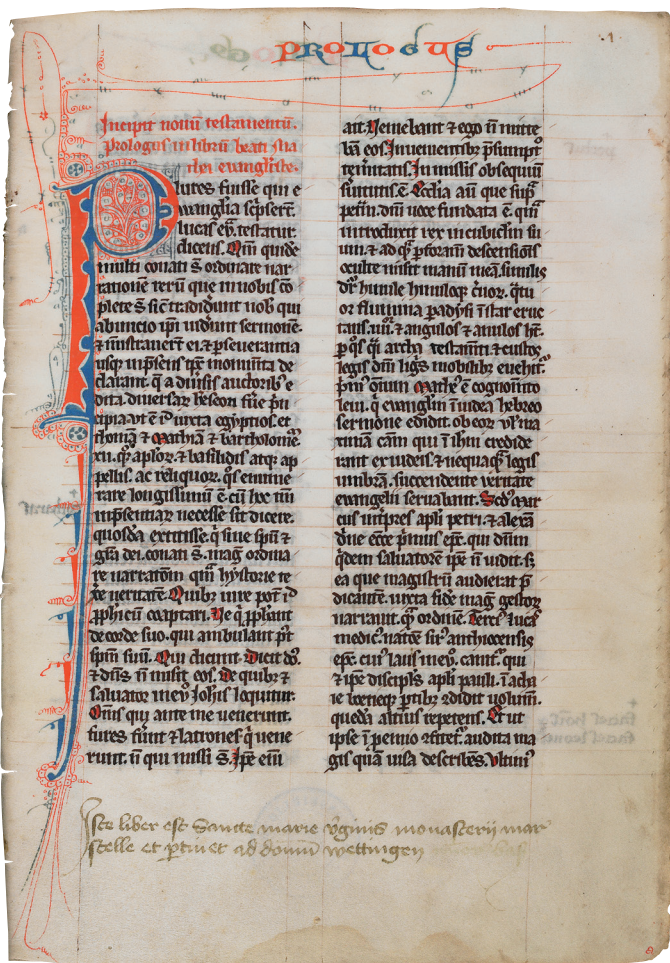 PROLOGUS
.1.
Incipit nouū testamentū.
Prologus in librū beati ma
thei evangliste.
Plures fuisse qui e
wanglia sc͛pserꝫt
lucas eꝟ. testatur
dicens. Qm̄ quidē
multi conati s̄ ordinare nar
rationē rerū que in nobis cō
plete s̄ sic̄ tradidunt nob̄ qui
ab inicio ip̄i uid̄unt sermonē
⁊ mīstrauerūt ei ⁊ ꝑseuerantia
usqꝫ in p̄sens tp̄s monimīta de
clarant. q̄ a diuīsis auctoribꝫ e
dita. diuersaꝝ heseon fūe p̄n
cipia ut ē id̄ iuxta egyptios. et
thomā ⁊ Mathiā ⁊ bartholomeū.
xii. qꝫ aplōꝝ. ⁊ basilidis atqꝫ ap
pellis. ac reliquoꝝ. q̄s enume
rare longissimū ē. cū hec tm̄
in p̄sentiaꝝ necesse sit dicere.
quosdā extitisse. q̄ sine sp̄u ⁊
gr̄a dei. conati s̄ mag̅ ordina
re narratōm qm̄ hystorie te
xe ueritatē. Quibꝫ iure pot̄ i͞d
ꝓphicū coaptari. Ve q̇ ꝓphant
de corde suo. qui ambulant p̄t
sp̄m suū. Qui dicunt. Dicit dn̄s.
⁊ dn̄s n̄ misit eos. De quibꝫ ⁊
saluator in eu̅o Ioh̄is loquitur.
Om̄is qui ante me uenerunt.
fures fūnt ⁊ latrones. q̇ uene
runt. n̄ qui missi s̄. Ip̄e eī
ait. Veniebant ⁊ ego n̄ mitte
bā eos. In uenientibꝫ p̄sumpt̄
temitatis. In missis obsequiū
suitutis ē. Ecclīa aū que sup̄
petrā. dn̄i uoce fundata ē. quā
introduxit rex in cubiclm̄ su
um. ⁊ ad qꝫ ꝑ foramē descensiōis
occulte misit manū suā. similis
dr̄ hinule hinnloqꝫ c̄uoꝝ. q̄tu
or flumina ꝑadysi ī star eruc
tans. iiii. ⁊ angulos ⁊ anulos h̄t.
ꝑ q̄s q̄i archa testamīti ⁊ custos
legis dn̄i ligīs mobilibꝫ euehit.
Primꝰ om̄iū Matheꝰ ē cognoīnto
leui. q̇ evangliū ī iudea hebreo
sermōne edidit. ob eoꝝ uł ma
ximā cām qui ī ihm̄ credide
rant ex iudeis. ⁊ nequaqꝫ legis
umbrā. succendente ueritate
evangelii seruabant. Sc̄ds mar
cus int͛pres apl̄i petri. ⁊ alexā
d͛ne ecc̄e p̄mus ep̄c. qui dn̄m
q̇dem saluatorē ip̄e n̄ uidit. sꝫ
ea que magistrū audierat p̄
dicantē. iuxta fidē mag̅ gestoꝝ
narrauit. qꝫ ordinē. Terciꝰ lucas
medicꝰ. natōe sirꝰ anthiocensis
ep̄c. cuiꝰ laus in eu̅o. canit̄. qui
⁊ ip̄e discip̄ls apl̄i pauli. ī acha
ie boeneqꝫ ꝑtibꝫ ↄdidit uolum̄.
quedā altius repetens. Et ut
ipse ī ꝓemio ↄfitet̄. audita ma
gis quā uisa describēs. Vltimꝰ
Iste liber est Sancte marie v͛ginis monasterij mar
stelle et ꝑtinet ad domū wettingen